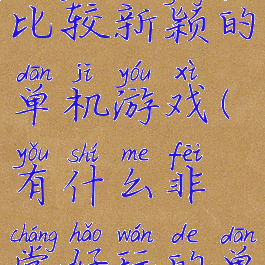 比较新颖的
dān jī yóu xì
单机游戏(
yǒu shí me fēi
有什么非
cháng hǎo wán de dān
常好玩的单